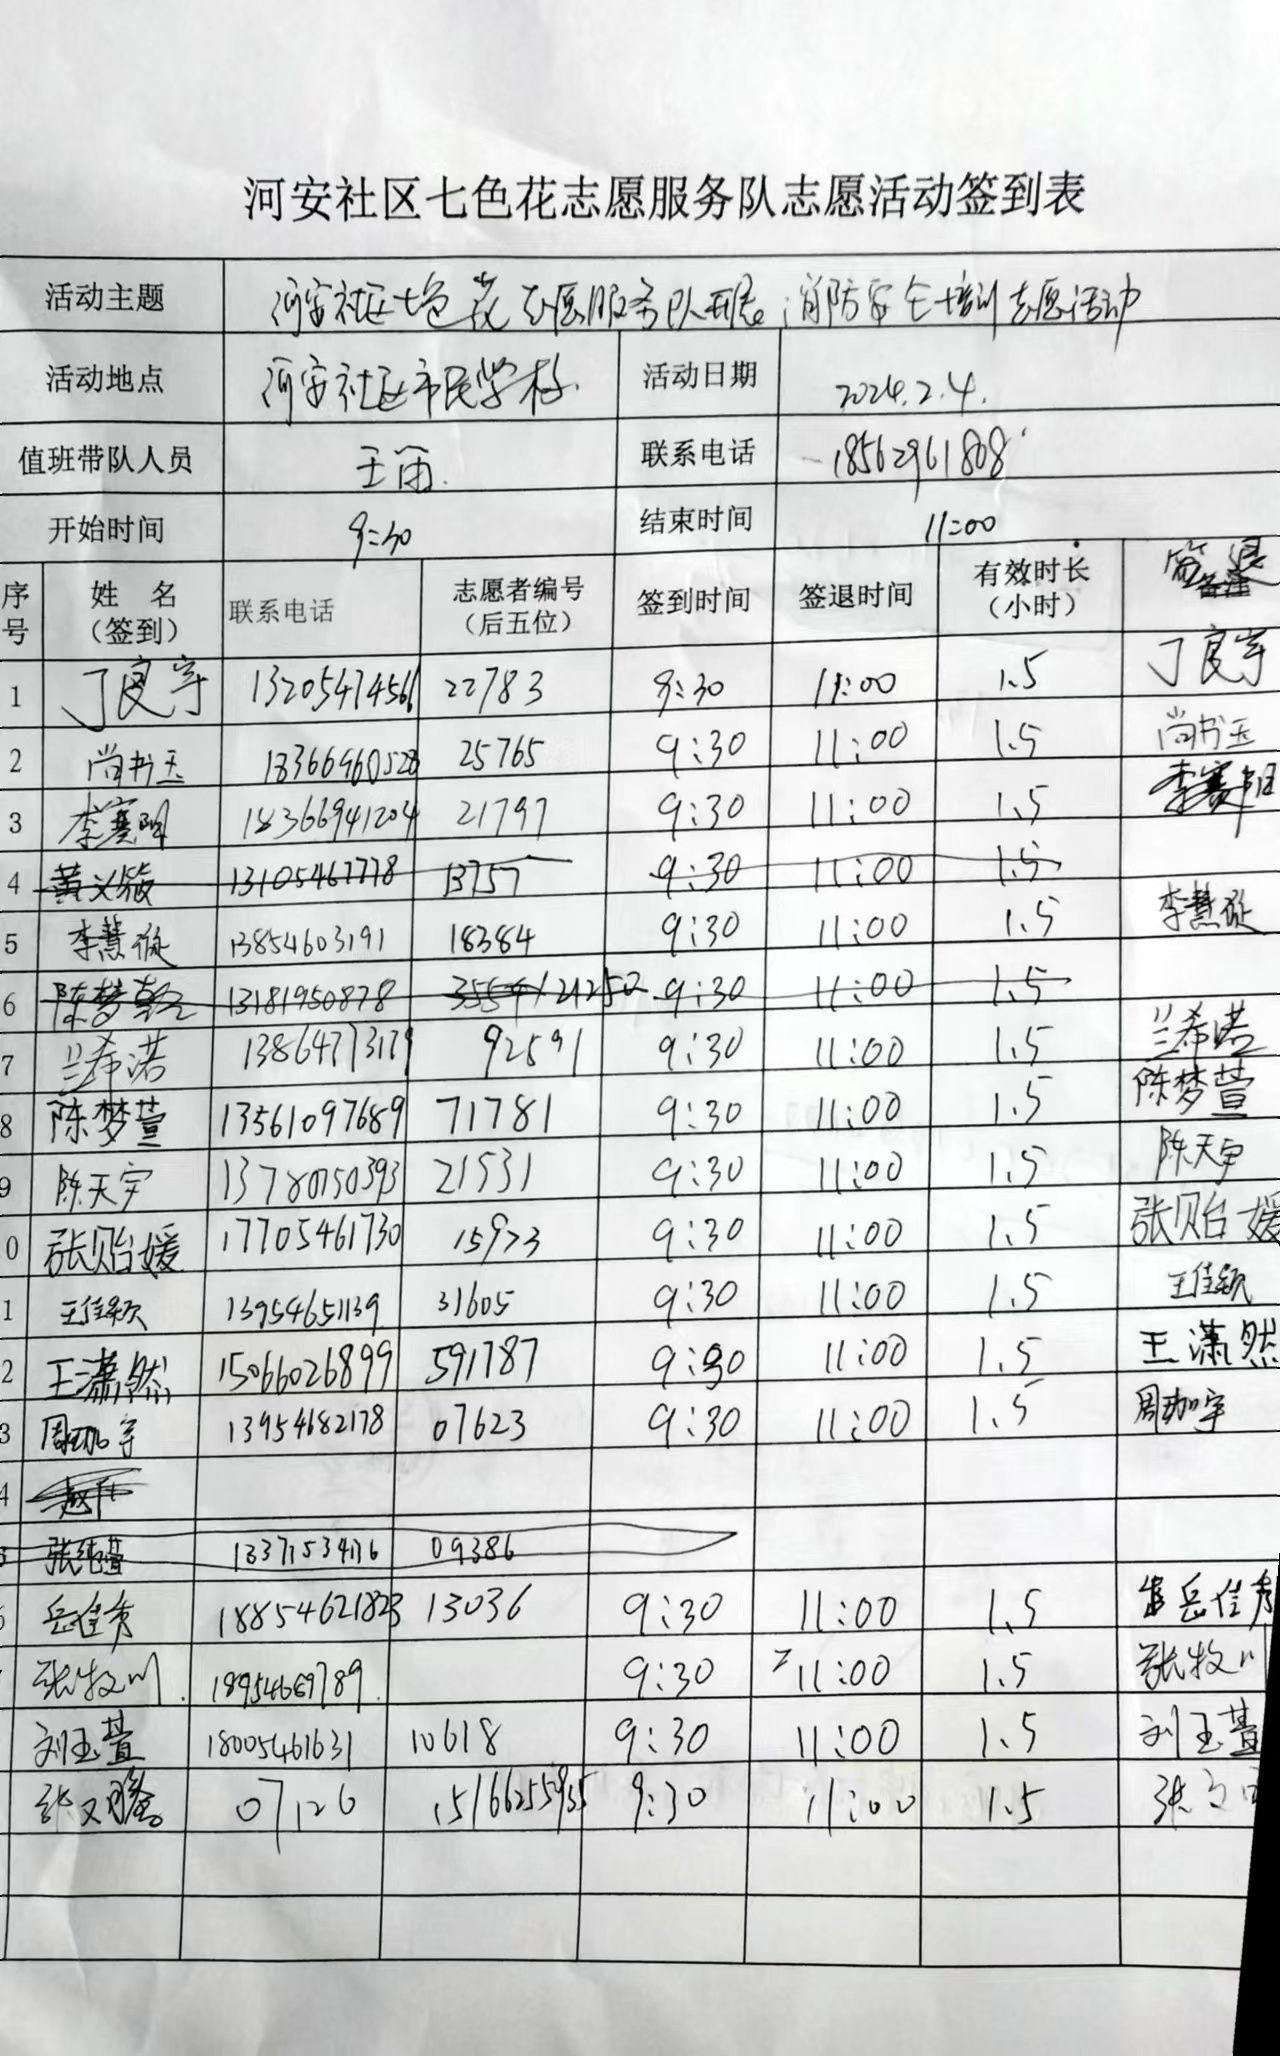 河安社区七色花志愿服务队志愿活动签到表
活动主题 河安社区七色花志愿服务队开展消防安全培训志愿活动
活动地点 河安社区市民学校 活动日期 2024.2.4.
值班带队人员 王雨 联系电话 18562961808
开始时间 9:30 结束时间 11:00
序号 姓名（签到） 联系电话 志愿者编号（后五位） 签到时间 签退时间 有效时长（小时） 签退
1 丁良宇 13205474566 22783 9:30 11:00 1.5 丁良宇
2 尚书玉 18366960528 25765 9:30 11:00 1.5 尚书玉
3 李赛明 18366941204 21797 9:30 11:00 1.5 李赛明
4 13105467778 13757 9:30 11:00 1.5
5 李慧璇 13854603191 18384 9:30 11:00 1.5 李慧璇
6 13181950878 21252 9:30 11:00 1.5
7 兰希诺 13864773179 92591 9:30 11:00 1.5 兰希诺
8 陈梦萱 13561097689 71781 9:30 11:00 1.5 陈梦萱
9 陈天宇 13780750393 21531 9:30 11:00 1.5 陈天宇
0 张贻媛 17705461730 15923 9:30 11:00 1.5 张贻媛
1 王佳颖 13954651139 31605 9:30 11:00 1.5 王佳颖
2 王潇然 15066026899 591787 9:30 11:00 1.5 王潇然
3 周珈宇 13954682178 07623 9:30 11:00 1.5 周珈宇
4
张纯萱 13371534116 09386
岳佳秀 18854621823 13036 9:30 11:00 1.5 岳佳秀
张牧川 18954669789 9:30 11:00 1.5 张牧川
刘玉萱 18005461631 10618 9:30 11:00 1.5 刘玉萱
张文 07126 15166255955 9:30 11:00 1.5 张文